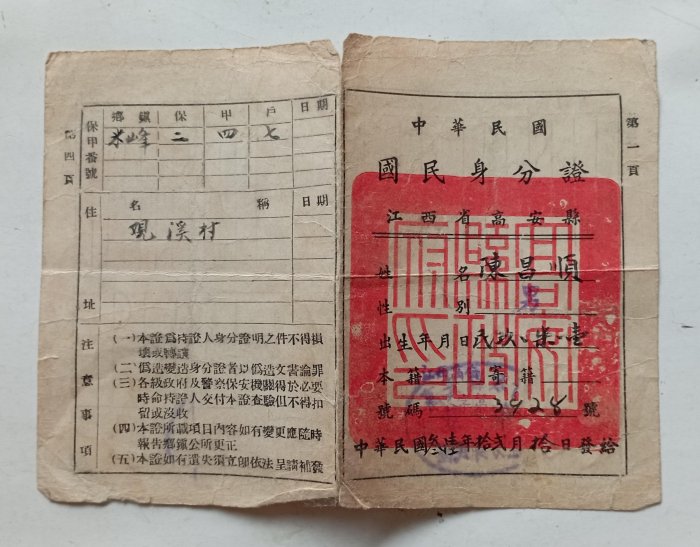 第一頁
中華民國
國民身分證
江西省高安縣
姓名 陳昌順
性別 男
出生年月日 民玖、柒、壹
本籍 寄籍
號碼 3928 號
中華民國叁陸年拾貳月拾日發給
第四頁
保甲番號
鄉鎮 保 甲 戶 日期
米峰 二 四 七
住址
名稱 日期
硯溪村
注意事項
(一)本證爲持證人身分證明之件不得損
壞或轉讓
(二)僞造變造身分證者以僞造文書論罪
(三)各級政府及警察保安機關得於必要
時命持證人交付本證查驗但不得扣
留或沒收
(四)本證所載項目內容如有變更應隨時
報告鄉鎮公所更正
(五)本證如有遺失須立卽依法呈請補發